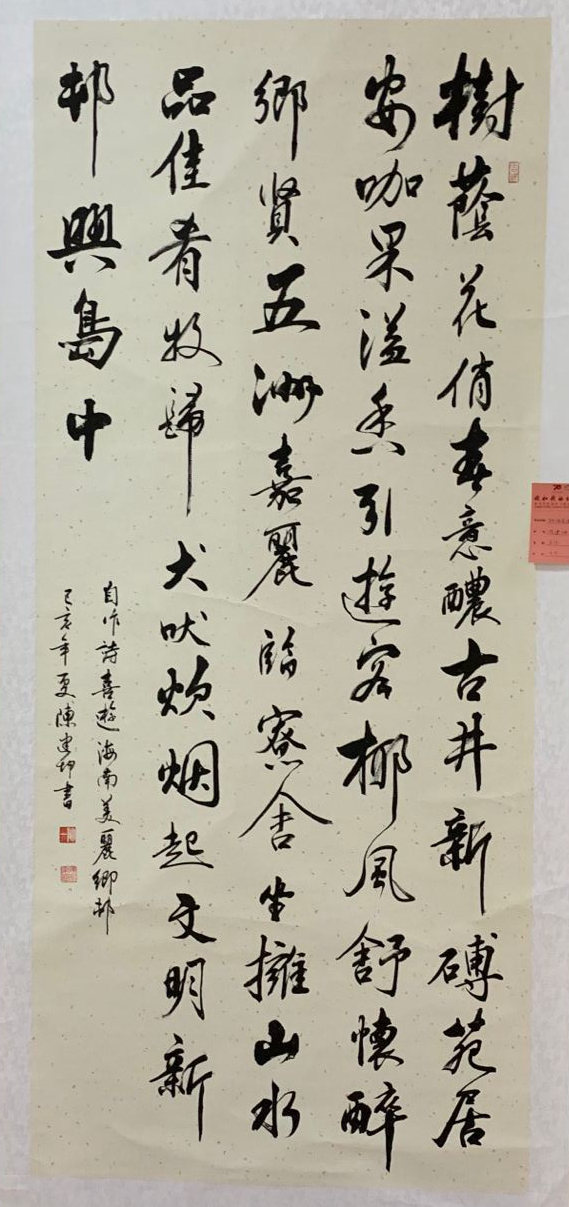 樹蔭花俏春意醲古井新磚苑居
安咖果溢香引遊客椰風舒懷醉
鄉賢五洲嘉麗臨寮舍坐擁山水
品佳肴牧歸犬吠炊烟起文明新
邨興島中
自作詩喜遊海南美麗鄉邨
己亥年夏陳建坤書